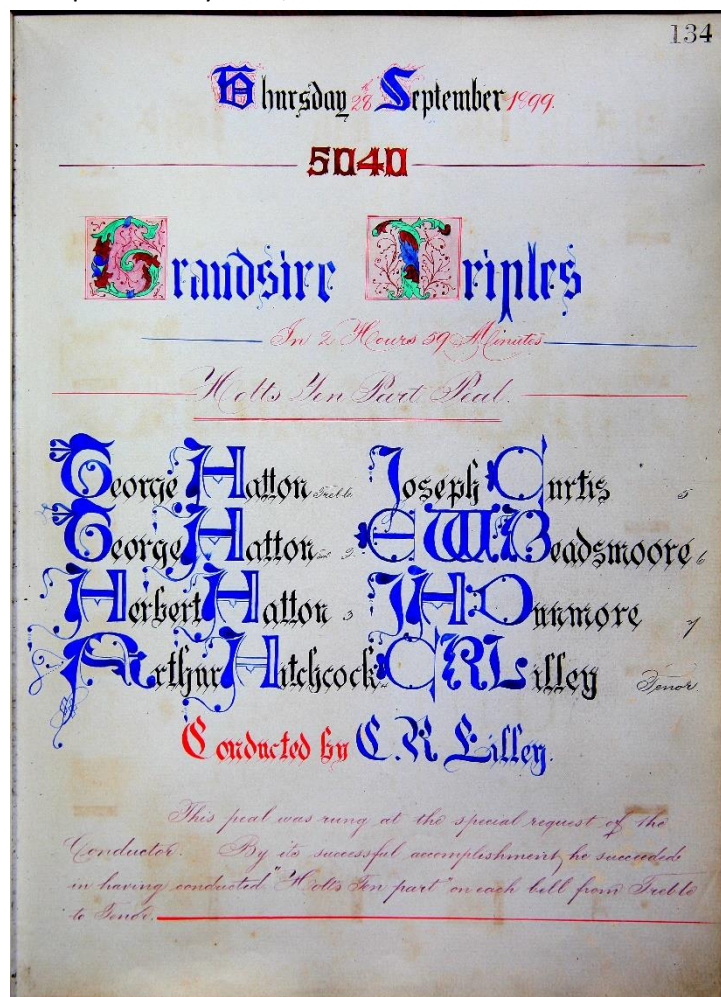 134
Thursday 28th September 1899.
5040
Grandsire Triples
In 2 Hours 59 Minutes
Holts Ten Part Peal.
George Hatton Treble Joseph Curtis 5
George Hatton 2 E W Beadsmoore 6
Herbert Hatton 3 J H Dunmore 7
Arthur Hitchcock C R Lilley Tenor
Conducted by C. R Lilley.
This peal was rung at the special request of the
Conductor. By its successful accomplishment, he succeeded
in having conducted "Holts Ten part" on each bell from Treble
to Tenor.